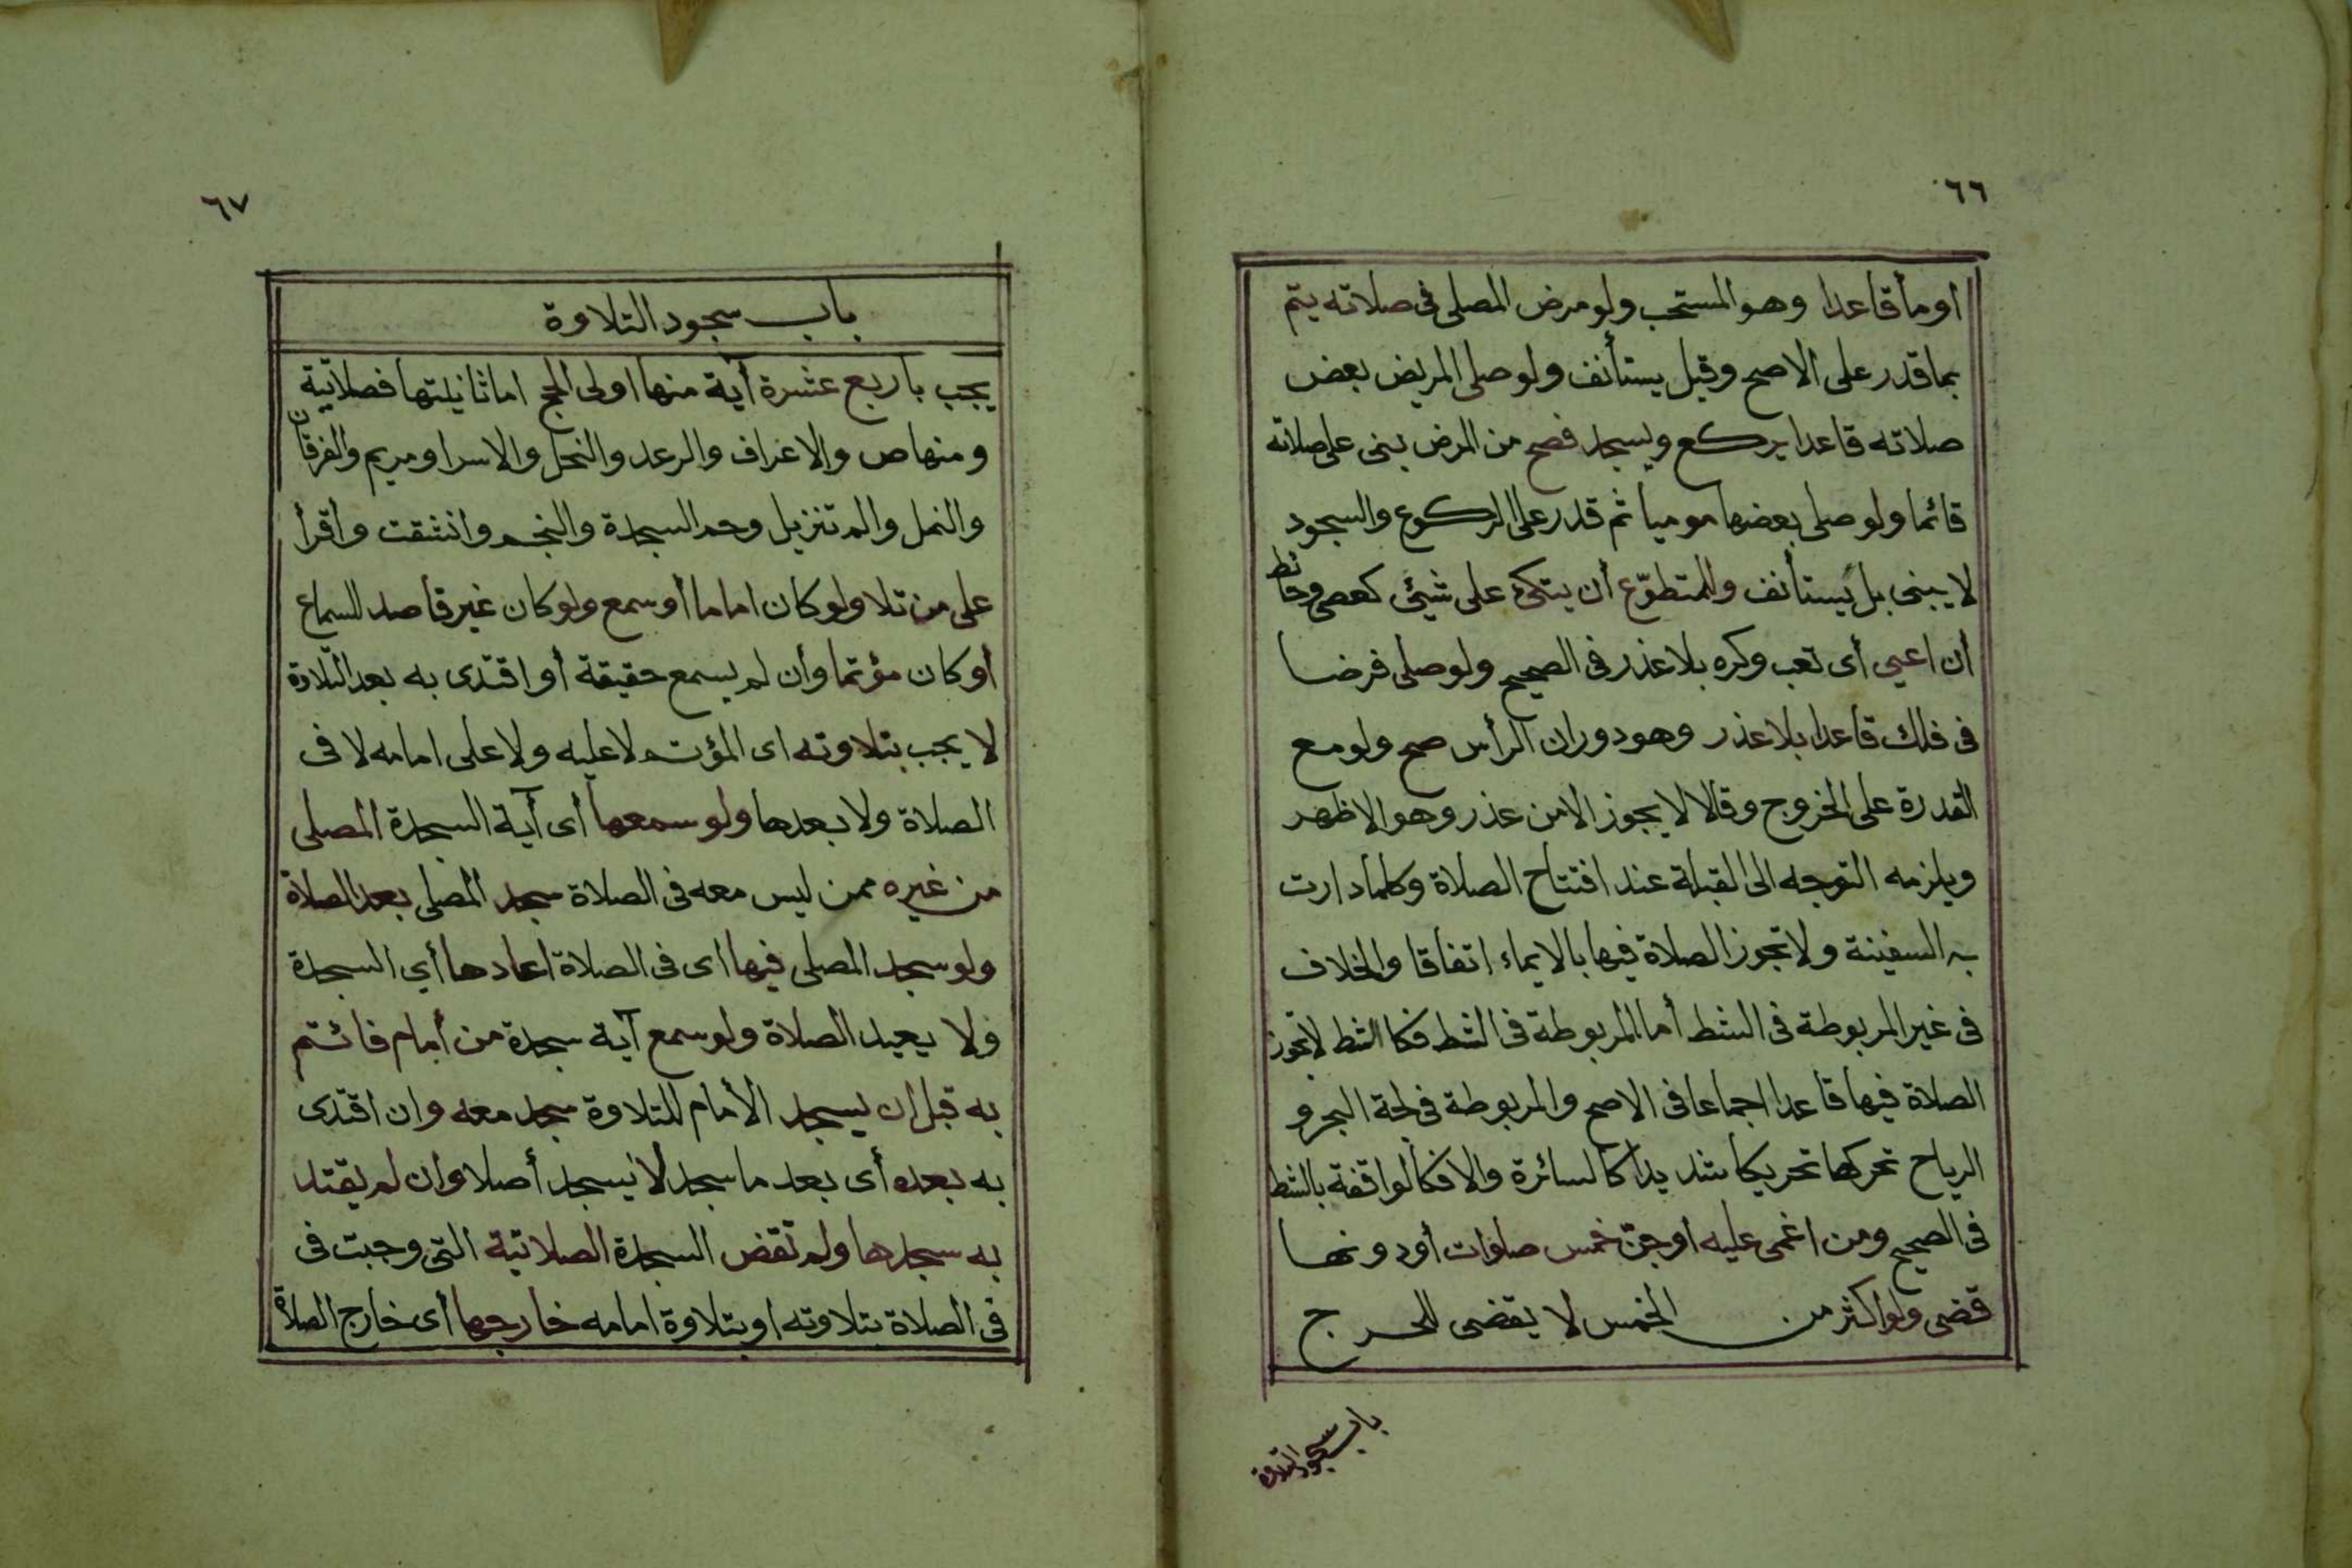 ٦٦
اومأ قاعدا وهو المستحب ولو مرض المصلى فى صلاته يتم
بما قدر على الاصح وقيل يستأنف ولو صلى المريض بعض
صلاته قاعدا يركع ويسجد فصح من المرض يبنى على صلاته
قائما ولو صلى بعضها موميا ثم قدر على الركوع والسجود
لا يبنى بل يستأنف وللمتطوّع أن يتكئ على شيئ كعصى وحائط
أن اعيى أى تعب وكره بلا عذر فى الصحيح ولو صلى فرضا
فى فلك قاعدا بلا عذر وهو دوران الرأس صح ولو مع
القدرة على الخروج وقالا لا يجوز الا من عذر وهو الاظهر
ويلزمه التوجه الى القبلة عند افتتاح الصلاة وكلما دارت
به السفينة ولا تجوز الصلاة فيها بالايماء اتفاقا والخلاف
فى غير المربوطة فى الشط أما المربوطة فى الشط فكا الشط لا تجوز
الصلاة فيها قاعدا اجماعا فى الاصح والمربوطة فى لجة البحر و
الرياح تحركها تحريكا شديدا كالسائرة والا فكالواقفة بالشط
فى الصحيح ومن اغمى عليه اوجنّ خمس صلوات أودونها
قضى ولو اكثر من الخمس لا يقضى للحرج
باب سجود التلاوة
٦٧
باب سجود التلاوة
يجب باربع عشرة آية منها اولى الحج اما ثانيلتها فصلاتية
ومنها ص والاعراف والرعد والنحل والاسرا ومريم والفرقان
والنمل والم تنزيل وحم السجدة والنجم وانشقت واقرأ
على من تلا ولو كان اماما أو سمع ولو كان غير قاصد للسماع
أو كان مؤتما وأن لم يسمع حقيقة أو اقتدى به بعد التلاوة
لا يجب بتلاوته اى المؤتم لا عليه ولا على امامه لا فى
الصلاة ولا بعدها ولو سمعها أى آية السجدة المصلى
من غيره ممن ليس معه فى الصلاة سجد المصلى بعد الصلاة
ولو سجد المصلى فيها اى فى الصلاة اعادها أي السجدة
ولا يعيد الصلاة ولو سمع آية سجدة من أمام فائتم
به قبل ان يسجد الأمام للتلاوة سجد معه وان اقتدى
به بعده أى بعد ما سجد لا يسجد أصلا وان لم يقتد
به سجدها ولم تقض السجدة الصلاتية التى وجبت فى
فى الصلاة بتلاوته او بتلاوة امامه خارجها أى خارج الصلاة